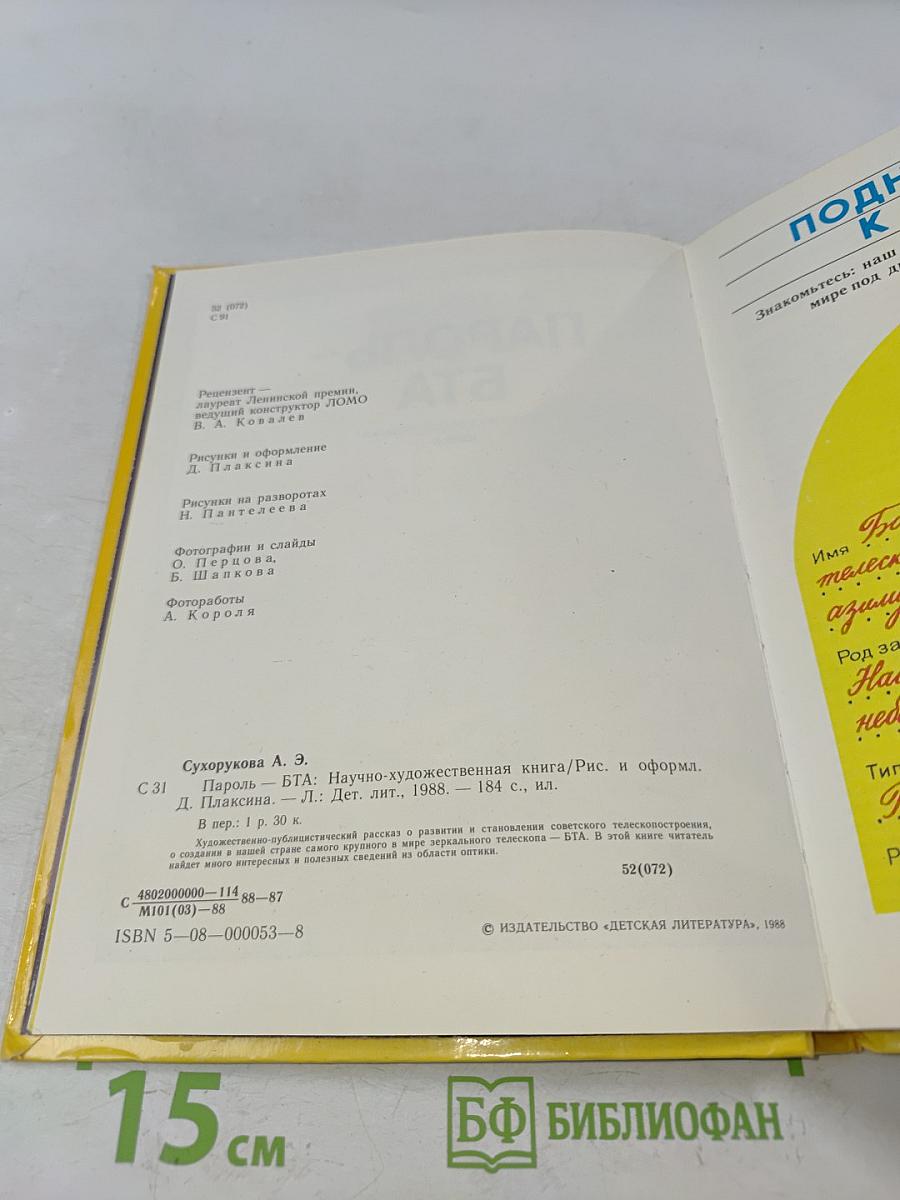 52 (072)
С 91
Рецензент —
лауреат Ленинской премии,
ведущий конструктор ЛОМО
В. А. Ковалев
Рисунки и оформление
Д. Плаксина
Рисунки на разворотах
Н. Пантелеева
Фотографии и слайды
О. Перцова,
Б. Шапкова
Фотоработы
А. Короля
Сухорукова А. Э.
С 31 Пароль — БТА: Научно-художественная книга/Рис. и оформл.
Д. Плаксина. — Л.: Дет. лит., 1988. — 184 с., ил.
В пер.: 1 р. 30 к.
Художественно-публицистический рассказ о развитии и становления советского телескопостроения,
о создании в нашей стране самого крупного в мире зеркального телескопа — БТА. В этой книге читатель
найдет много интересных и полезных сведений из области оптики.
52(072)
С 4802000000—114 88—87
М101(03)—88
ISBN 5—08—000053—8
© ИЗДАТЕЛЬСТВО «ДЕТСКАЯ ЛИТЕРАТУРА», 1988
ПАРОЛЬ —
БТА
К
Знакомьтесь: наш
мире под
Имя
Род
15 см
БФ БИБЛИОФАН